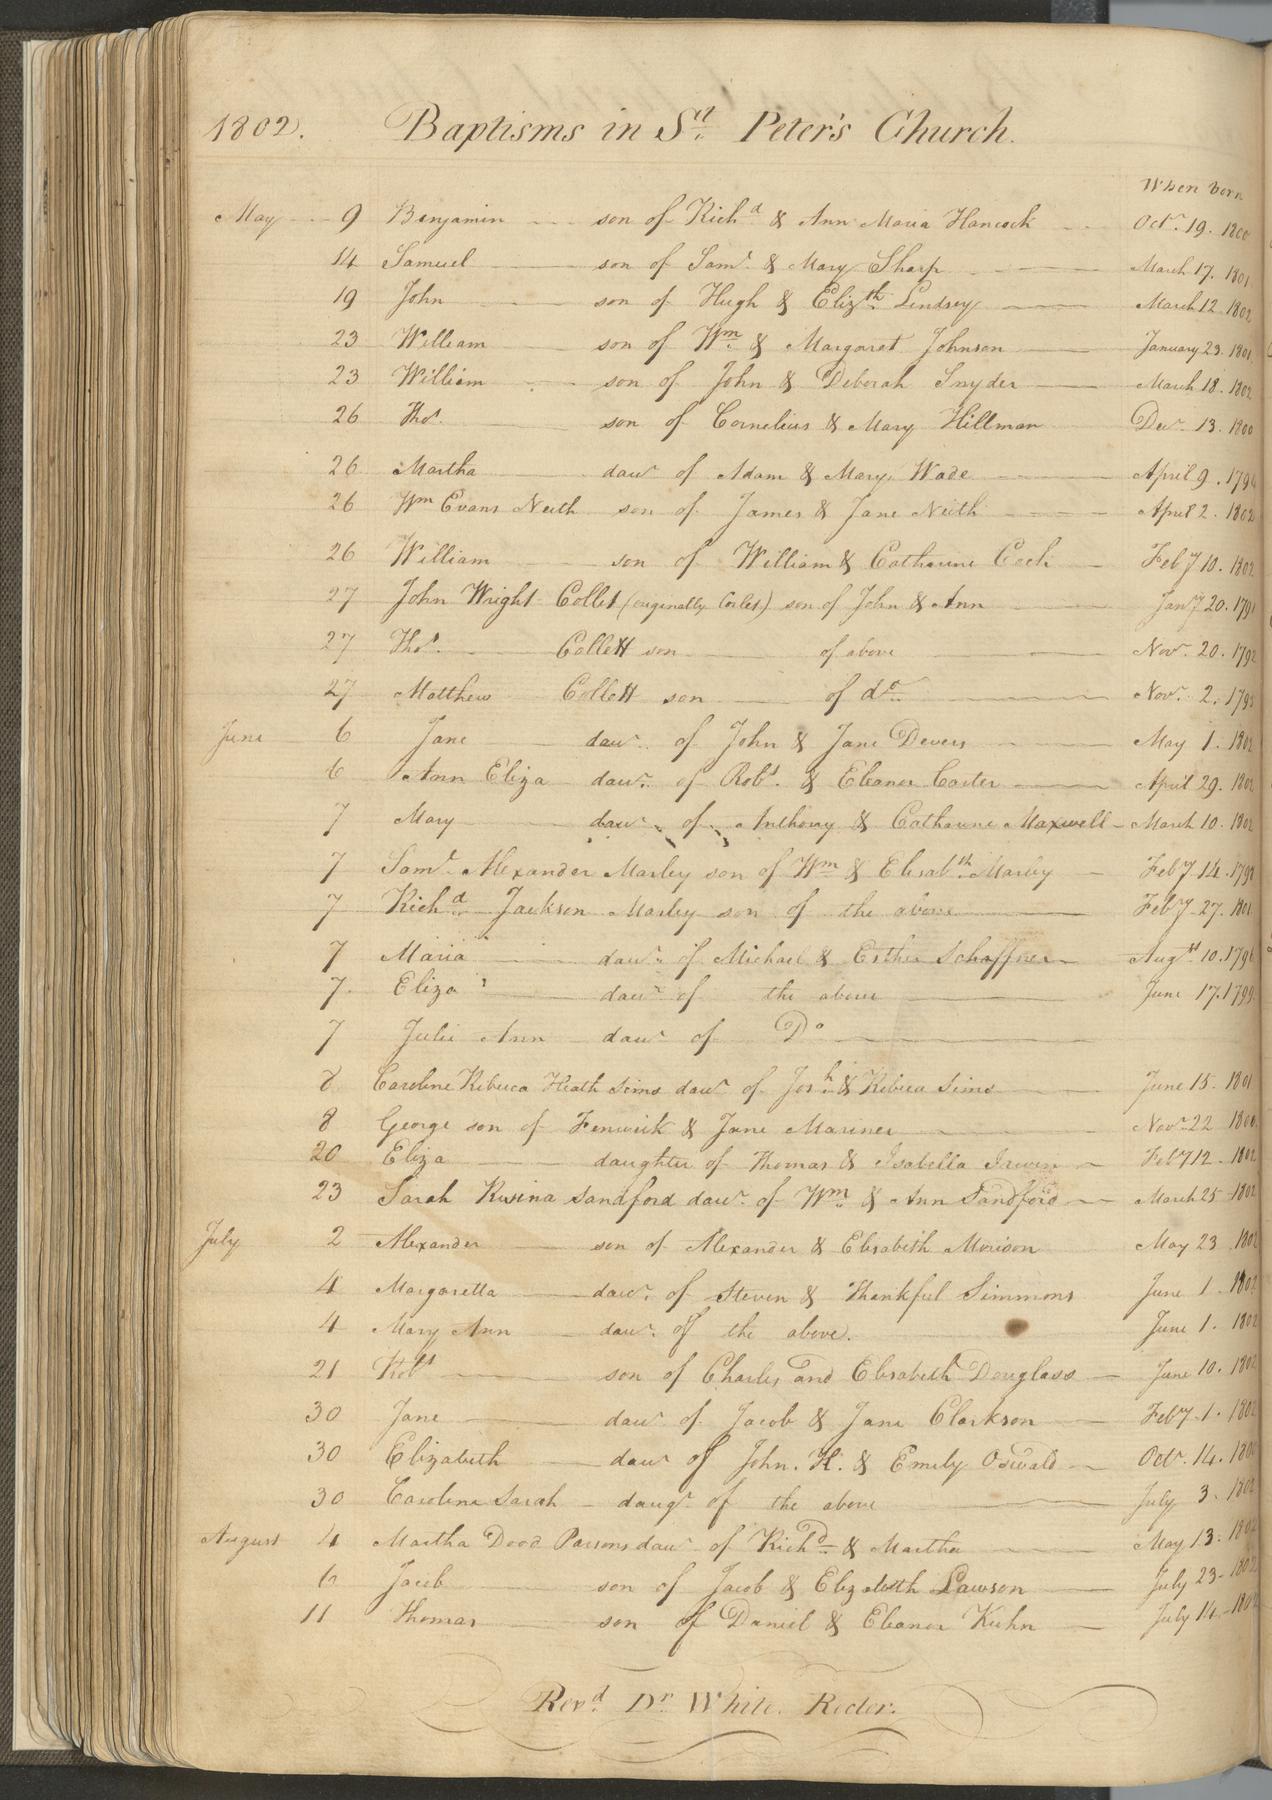 1802. Baptisms in St. Peter's Church.
When born
May 9 Benjamin son of Richd & Ann Maria Hancock Octr. 19. 1800
14 Samuel son of Saml & Mary Sharp March 17. 1801
19 John son of Hugh & Elizth Lindsey March 12. 1802
23 William son of Wm & Margaret Johnson January 23. 1801
23 William son of John & Deborah Snyder March 18. 1802
26 Thos. son of Cornelius & Mary Hillman Decr. 13. 1800
26 Martha daur of Adam & Mary Wade April 9.
26 Wm Evans Neith son of James & Jane Neith April 2. 1802
26 William son of William & Catharine Feby 10. 1802
27 John Wright Collet (originally Corlet) son of John & Ann Jany 20.
27 Thos. Collett son of above Novr. 20. 1792
27 Matthew Collett son of do. Novr. 2. 1795
June 6 Jane daur. of John & Jane Devers May 1. 1802
6 Ann Eliza daur. of Robt. & Eleanor Carter April 29. 1802
7 Mary daur. of Anthony & Catharine Maxwell March 10. 1802
7 Saml. Alexander Marley son of Wm & Elisabth Marley Feby 14.
7 Richd Jackson Marley son of the above Feby 27. 1801
7 Maria daur. of Michael & Esther Schaffner Augst 10. 1796
7. Eliza daur of the above June 17. 1799.
7 Julia Ann daur of Do
8 Caroline Rebecca Heath Sims daur of Josh & Rebecca Sims June 15. 1801
8 George son of Fenwick & Jane Mariner Novr. 22 1800.
20 Eliza daughter of Thomas & Isabella Irwin Feby 12. 1802
23 Sarah Rusina Sandford daur. of Wm & Ann Sandford March 25 1802
July 2 Alexander son of Alexander & Elisabeth Morison May 23 1802
4 Margaretta daur. of Steven & Thankful Simmons June 1. 1802
4 Mary Ann daur. of the above. June 1. 1802
21 Robt son of Charles and Elisabeth Douglass June 10. 1802
30 Jane daur of Jacob & Jane Clarkson Feby 1. 1802
30 Elizabeth daur of John. H. & Emily Oswald Octr. 14. 1800
30 Caroline Sarah daugr. of the above July 3. 1802
August 4 Martha Dood Parsons daur of Richd & Martha May 13. 1802
6 Jacob son of Jacob & Elizabeth Lawson July 23 1802
11 Thomas son of Daniel & Eleanor Kuhn July 14 1802
Revd. Dr White. Rector.